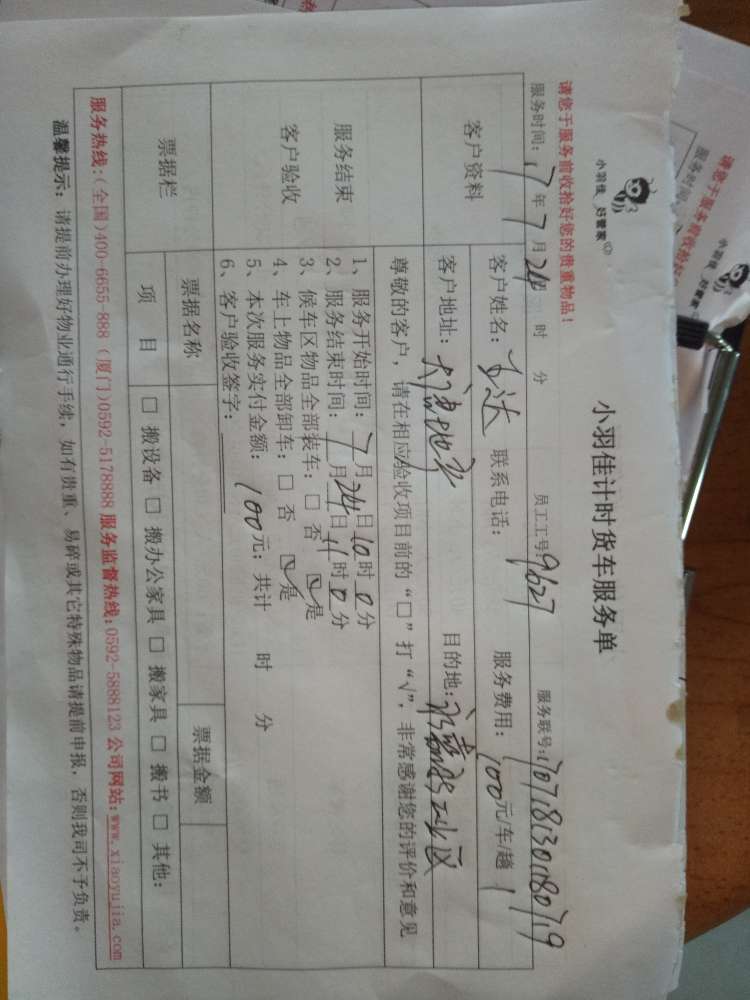 小羽佳 好管家
小羽佳计时货车服务单
请您于服务前收拾好您的贵重物品！
服务时间：17年7月24日 时 分 员工工号：9627 服务联号：
客户资料
客户姓名： 联系电话： 服务费用：100元/车/趟 1
客户地址： 目的地： 工业区
尊敬的客户，请在相应验收项目前的“□”打“√”，非常感谢您的评价和意见
服务结束
客户验收
1、服务开始时间：7月24日10时0分
2、服务结束时间：7月24日11时0分
3、候车区物品全部装车：□ 否 ☑是
4、车上物品全部卸车：□ 否 ☑是
5、本次服务实付金额：100元；共计 时 分
6、客户验收签字：
票据栏
票据名称 票据金额
项 目 □ 搬设备 □ 搬办公家具 □ 搬家具 □ 搬书 □ 其他：
服务热线：(全国)400-6655-888 (厦门)0592-5178888 服务监督热线：0592-5888123 公司网站：www.xiaoyujia.com
温馨提示：请提前办理好物业通行手续，如有贵重、易碎或其它特殊物品请提前申报，否则我司不予负责。
小羽佳 好管家
请您于服务前收拾好
服务时间